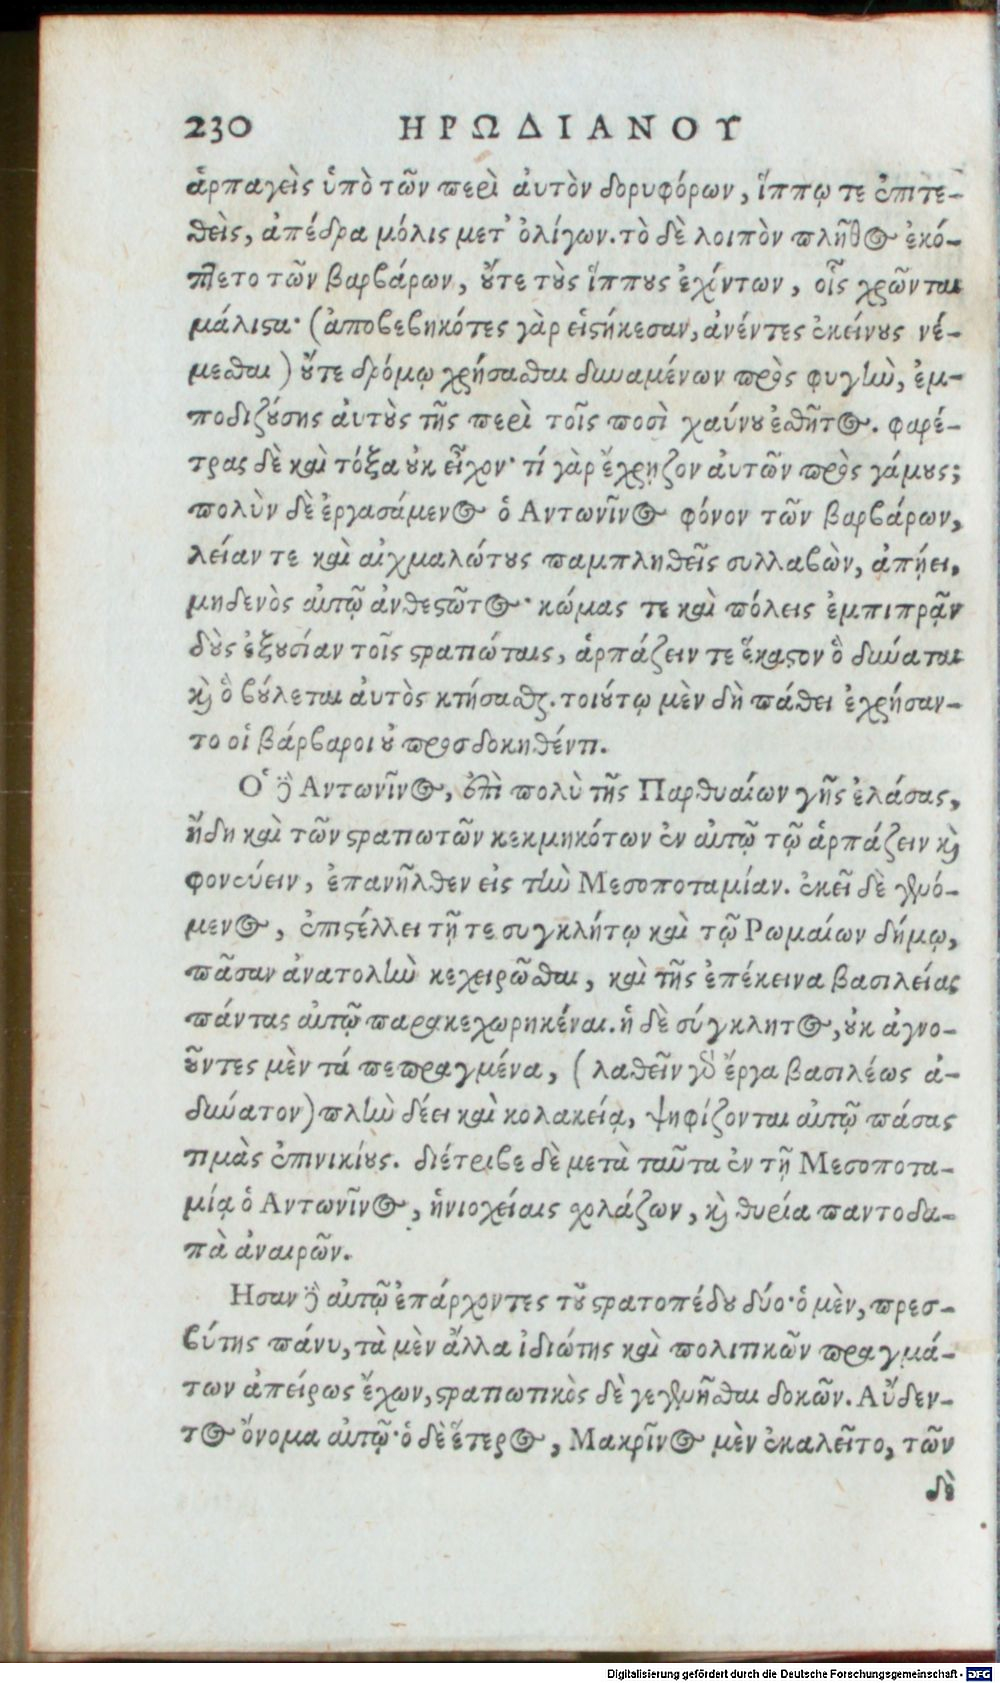 230 ΗΡΩΔΙΑΝΟΥ
ἁρπαγεὶς ὑπὸ τῶν περὶ αὐτὸν δορυφόρων, ἵππῳ τε ἐπιτε-
θεὶς, ἀπέδρα μόλις μετ' ὀλίγων. τὸ δὲ λοιπὸν πλῆθος ἐκό-
πτετο τῶν βαρβάρων, οὔτε τοὺς ἵππους ἐχόντων, οἷς χρῶνται
μάλιστα· (ἀποβεβηκότες γὰρ εἱστήκεσαν, ἀνέντες ἐκείνους νέ-
μεσθαι) οὔτε δρόμῳ χρήσασθαι δυναμένων πρὸς φυγὴν, ἐμ-
ποδιζούσης αὐτοὺς τῆς περὶ τοῖς ποσὶ χαύνου ἐσθῆτος. φαρέ-
τρας δὲ καὶ τόξα οὐκ εἶχον· τί γὰρ ἔχρηζον αὐτῶν πρὸς γάμους;
πολὺν δὲ ἐργασάμενος ὁ Αντωνῖνος φόνον τῶν βαρβάρων,
λείαν τε καὶ αἰχμαλώτους παμπληθεῖς συλλαβὼν, ἀπῄει,
μηδενὸς αὐτῷ ἀνθεστῶτος· κώμας τε καὶ πόλεις ἐμπιπρᾷν
δοὺς ἐξουσίαν τοῖς στρατιώταις, ἁρπάζειν τε ἕκαστον ὃ δύναται
καὶ ὃ βούλεται αὐτὸς κτήσασθαι. τοιούτῳ μὲν δὴ πάθει ἐχρήσαν-
το οἱ βάρβαροι οὐ προσδοκηθέντι.
Ὁ δὲ Αντωνῖνος, ἐπὶ πολὺ τῆς Παρθυαίων γῆς ἐλάσας,
ἤδη καὶ τῶν στρατιωτῶν κεκμηκότων ἐν αὐτῷ τῷ ἁρπάζειν καὶ
φονεύειν, ἐπανῆλθεν εἰς τὴν Μεσοποταμίαν. ἐκεῖ δὲ γενό-
μενος, ἐπιστέλλει τῇ τε συγκλήτῳ καὶ τῷ Ρωμαίων δήμῳ,
πᾶσαν ἀνατολὴν κεχειρῶσθαι, καὶ τῆς ἐπέκεινα βασιλείας
πάντας αὐτῷ παρακεχωρηκέναι. ἡ δὲ σύγκλητος, οὐκ ἀγνο-
οῦντες μὲν τά πεπραγμένα, (λαθεῖν γὰρ ἔργα βασιλέως ἀ-
δύνατον) πλὴν δέει καὶ κολακείᾳ, ψηφίζονται αὐτῷ πάσας
τιμὰς ἐπινικίους. διέτριβε δὲ μετὰ ταῦτα ἐν τῇ Μεσοποτα-
μίᾳ ὁ Αντωνῖνος, ἡνιοχείαις σχολάζων, καὶ θηρία παντοδα-
πὰ ἀναιρῶν.
Ησαν δὲ αὐτῷ ἐπάρχοντες τοῦ στρατοπέδου δύο· ὁ μὲν, πρεσ-
βύτης πάνυ, τὰ μὲν ἄλλα ἰδιώτης καὶ πολιτικῶν πραγμά-
των ἀπείρως ἔχων, στρατιωτικὸς δὲ γεγενῆσθαι δοκῶν. Αὔδεν-
τος ὄνομα αὐτῷ· ὁ δὲ ἕτερος, Μακρῖνος μὲν ἐκαλεῖτο, τῶν
δὲ
Digitalisierung gefördert durch die Deutsche Forschungsgemeinschaft - DFG